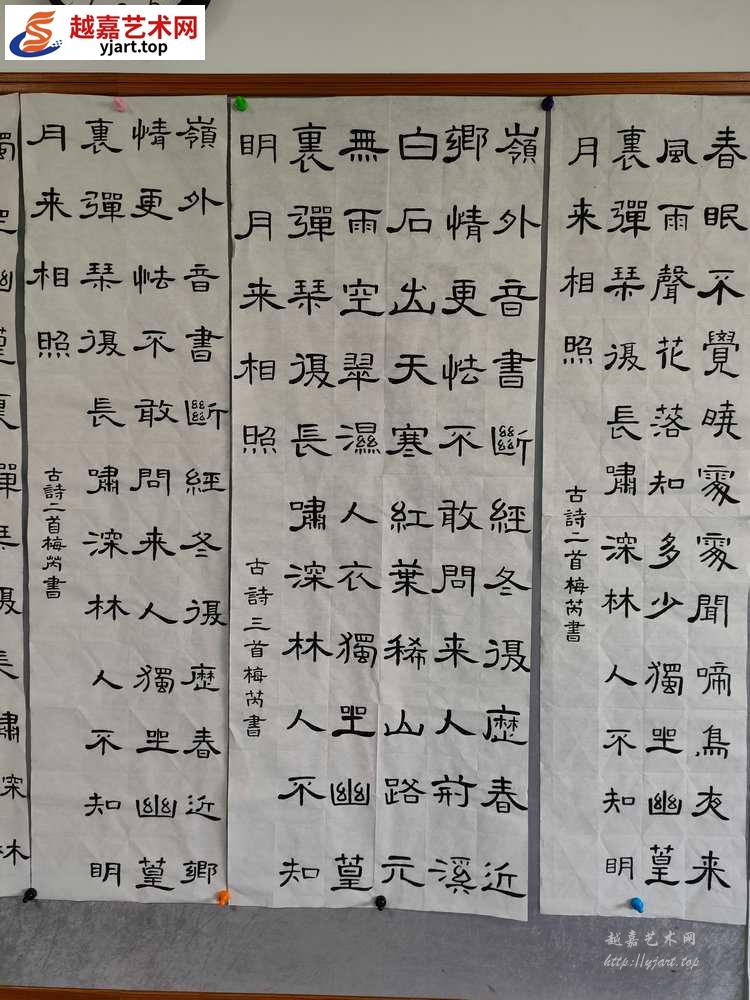 越嘉艺术网
yjart.top
春眠不覺曉處處聞啼鳥夜来
風雨聲花落知多少獨坐幽篁
裏彈琴復長嘯深林人不知明
月来相照
古詩二首梅芮書
嶺外音書斷經冬復歷春近
鄉情更怯不敢問来人荊溪
白石出天寒紅葉稀山路元
無雨空翠濕人衣獨坐幽篁
裏彈琴復長嘯深林人不知
明月来相照
古詩三首梅芮書
嶺外音書斷經冬復歷春近鄉
情更怯不敢問来人獨坐幽篁
裏彈琴復長嘯深林人不知明
月来相照
古詩二首梅芮書
獨坐幽篁裏彈琴復長嘯深林
越嘉艺术网
http://yjart.top